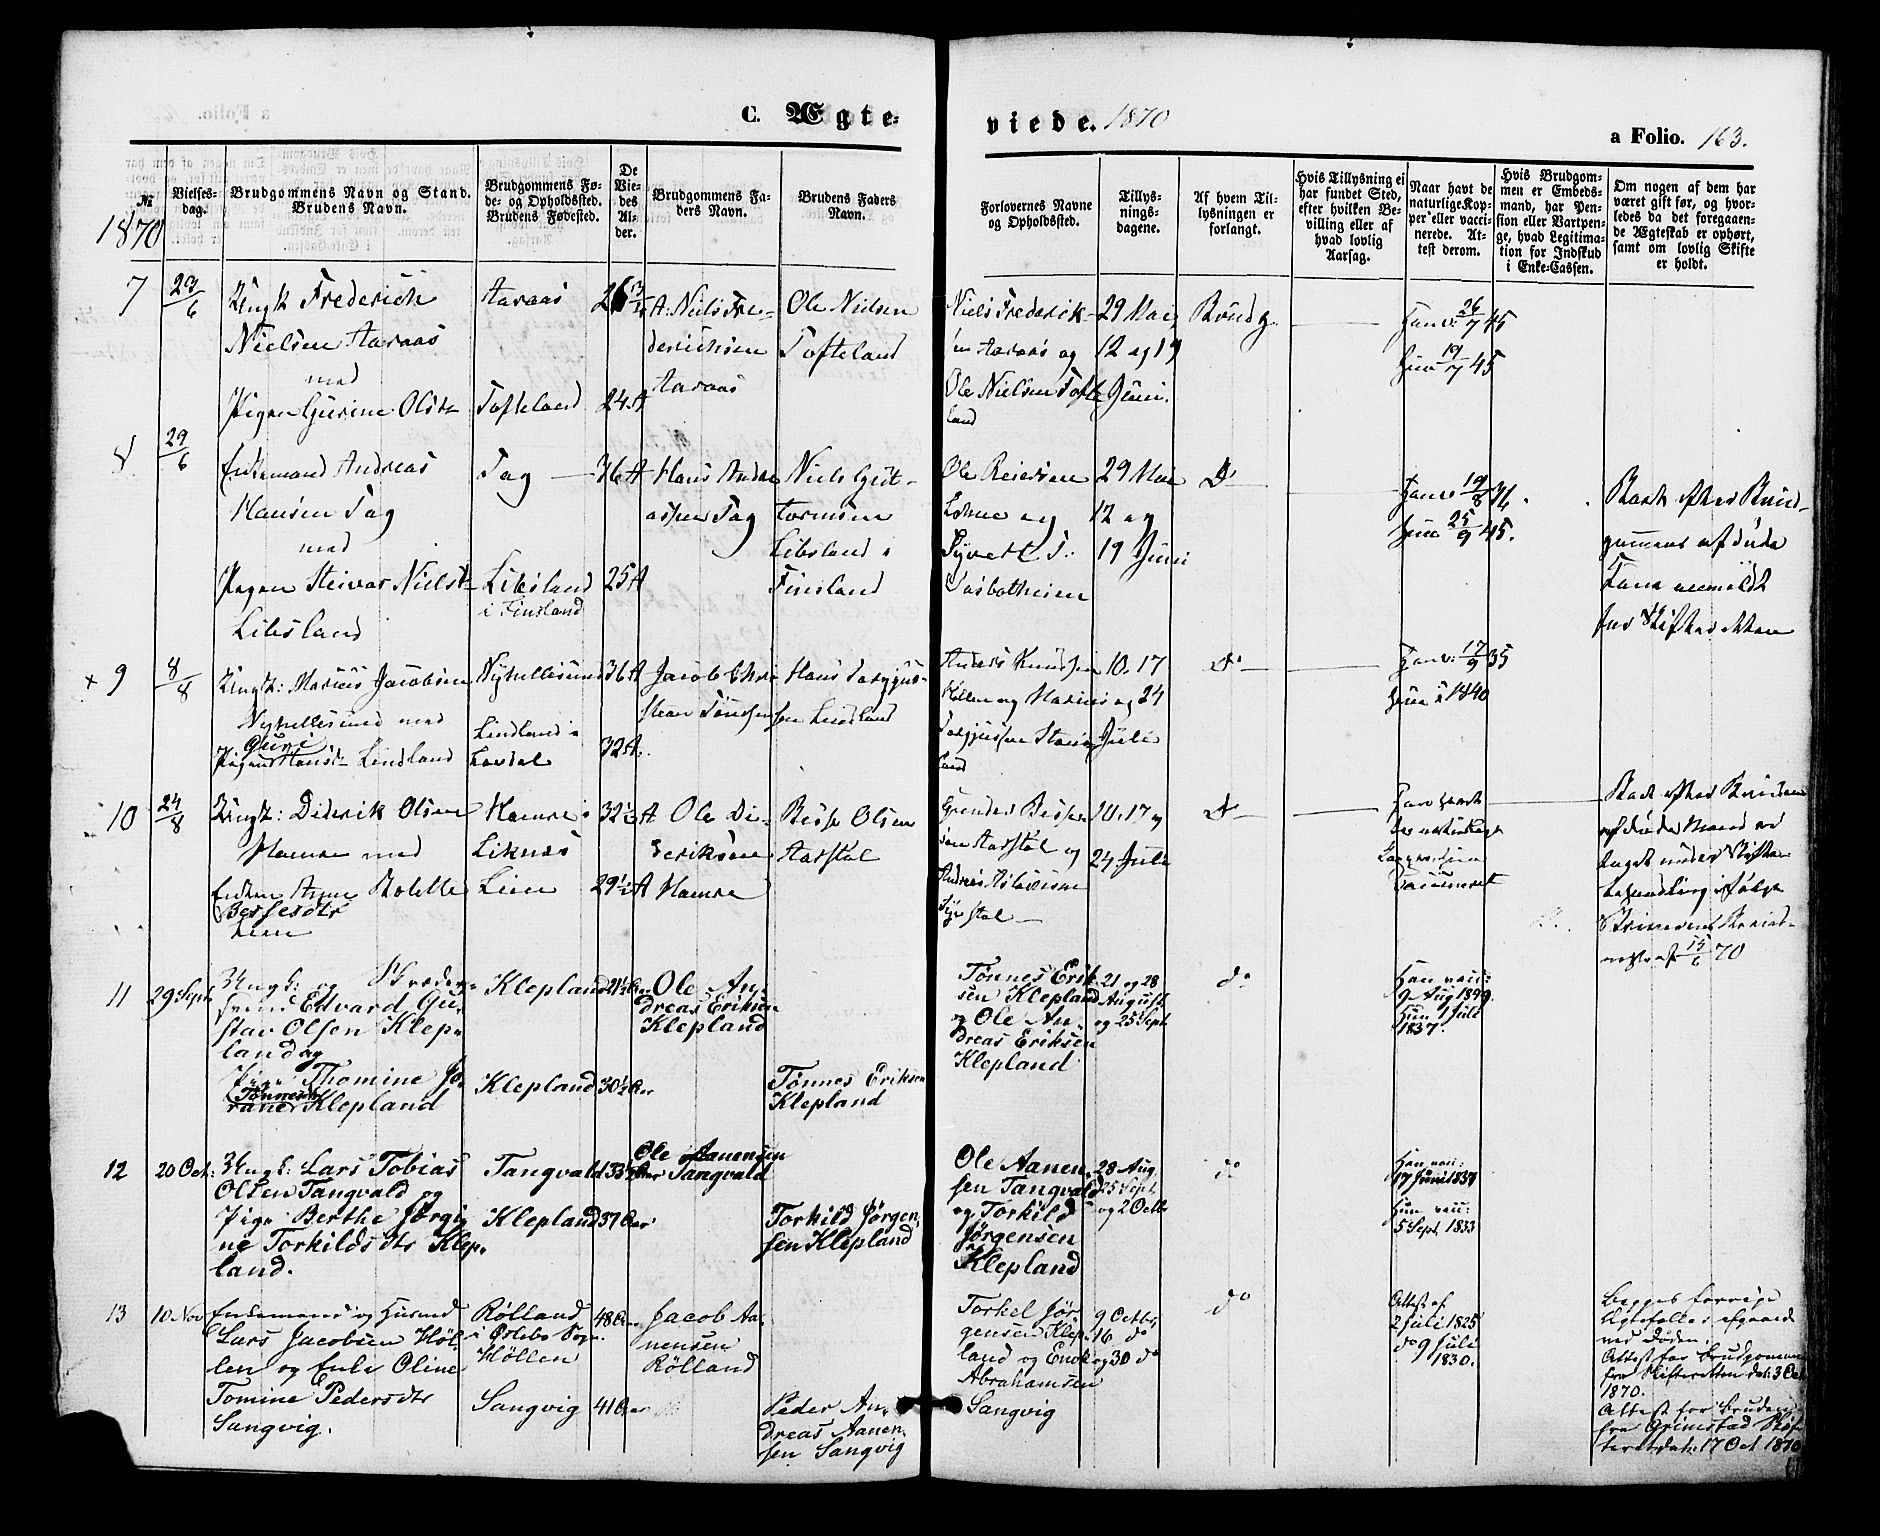 C. Ægte-
viede. 1870
a Folio. 163.
№
Vielses-
dag.
Brudgommens Navn og Stand.
Brudens Navn.
Brudgommens Fø-
de- og Opholdssted.
Brudens Fødested.
De
Vie-
des
Al-
der.
Brudgommens Fa-
ders Navn.
Brudens Faders
Navn.
Forlovernes Navne
og Opholdssted.
Tillys-
nings-
dagene.
Af hvem Til-
lysningen er
forlangt.
Hvis Tillysning ei
har fundet Sted,
efter hvilken Be-
villing eller af
hvad lovlig
Aarsag.
Naar havt de
naturlige Kop-
per eller vacci-
nerede. At-
test derom.
Hvis Brudgom-
men er Embeds-
mand, har Pen-
sion eller Vartpen-
ge, hvad Legitima-
tion for Indskud
i Enke-Cassen.
Om nogen af dem har
været gift før, og hvor-
ledes da det foregaaen-
de Ægteskab er ophørt,
samt om lovlig Skifte
er holdt.
1870
7
29/6
Ungk Frederich
Nielsen Aaraas
med
Pigen Gurine Olsdtr
Aaraas
Tofteland
24 A
A: Niels Fre-
derichsen
Aaraas
Ole Nielsen
Tofteland
Niels Frederik-
sen Aaraas og
Ole Nielsen Tofte
land
29 Mai,
12 og 19
Juni.
Brudg.
Han v: 26/7 45
Hun 19/7 45
8
29/6
Enkemand Andreas
Hansen Tag
med
Pigen Steivar Nielsdtr
Libsland
Tag
Libsland
i Finsland
36 A
25 A
Hans Andre
assen Tag
Niels Gut-
tormsen
Libsland i
Finsland
Ole Reiersen
Lohne og
Syvert T:
Vasbotheien
29 Mai
12 og
19 Juni
Do
Han v 19/8 36.
Hun 25/9 45.
Bevist efter Brud-
gommens afdøde
Kone anmeldt
for Skifteretten
x 9
8/8
Ungk: Marius Jacobsen
Nyhellesund med
Pigen Guri Hansdtr Lindland
Nyhellesund
Lindland i
Laudal
36 A
32 A.
Jacob Chri
stian Tønsen
Hans Tarjus-
sen Lindland
Anders Knudsen
og Marius
Tarjussen
land
10. 17
og 24
Juli
Do
Han v: 17/9 35
Hun i 1840
10
24/8
Ungk: Diderik Olsen
Hamre med
Enken Anne Bolette
Bessesdtr
Lien
Hamre i
Liknes
Lien
32 1/2 A
29 1/2 A
Ole Di-
deriksen
Hamre
Besse Olsen
Aarstøl
Gunder Besse
sen Aarstøl og
Andreas Aslaksen
10. 17 og
24 Juli
Do
Han havt
de naturlige
Kopper. Hun
vaccineret
Bevist efter Brudens
afdøde Mand
under Skifte
behandling ifølge
15/6 70
11
29 Sept.
Ungk: og
svend Edvard Gu-
stav Olsen Klep-
land og
Pige Thomine Jo-
Tønnesdtr
rane Klepland
Klepland
Klepland
21 1/2 Aar
30 1/2 Aar
Ole An-
dreas Eriksen
Klepland
Tønnes Eriksen
Klepland
Tønnes Erik-
sen Klepland
og Ole An-
dreas Eriksen
Klepland
21 og 28
August
og 25 Sept.
do
Han vacc:
9 Aug 1849.
Hun 1 Juli
1837.
12
20 Oct:
Ungk: Lars Tobias
Olsen Tangvald og
Pige Berthe Jørgi-
ne Torkildsdtr Klep-
land.
Tangvald
Klepland
33 1/2 Aar
37 Aar
Ole Aanensen
Tangvald
Torkild Jørgen-
sen Klepland
Ole Aanen-
sen Tangvald
og Torkild
Jørgensen
Klepland
28 Aug.
25 Sept.
og 2 Octb.
do
Han vacc:
17 Juni 1837
Hun vacc:
5 Sept. 1833
13
10 Nov
Enkemand og Husmd
Lars Jacobsen Høl-
len og Enke Oline
Tomine Pedersdtr
Sangvig.
Rølland
i Øslebø Sogn.
Høllen
Sangvig
48 Aar
41 Aar
Jacob Aa-
nensen
Rølland
Peder An-
dreas Aanen-
sen Sangvig
Torkel Jør-
gensen Klep-
land og Enok
Abrahamsen
Sangvig
9 Octbr,
16 do
og 30 do
do
Attest af
2 Juli 1825
do 9 Juli
1830.
Begges forrige
Ægtefolle afgaaede
ved Døden.
Attest for Brudgommen
fra Skifteretten dat: 3 Oct
1870.
Attest for Bruden
fra Grimstad Skif-
teret dat: 17 Oct 1870